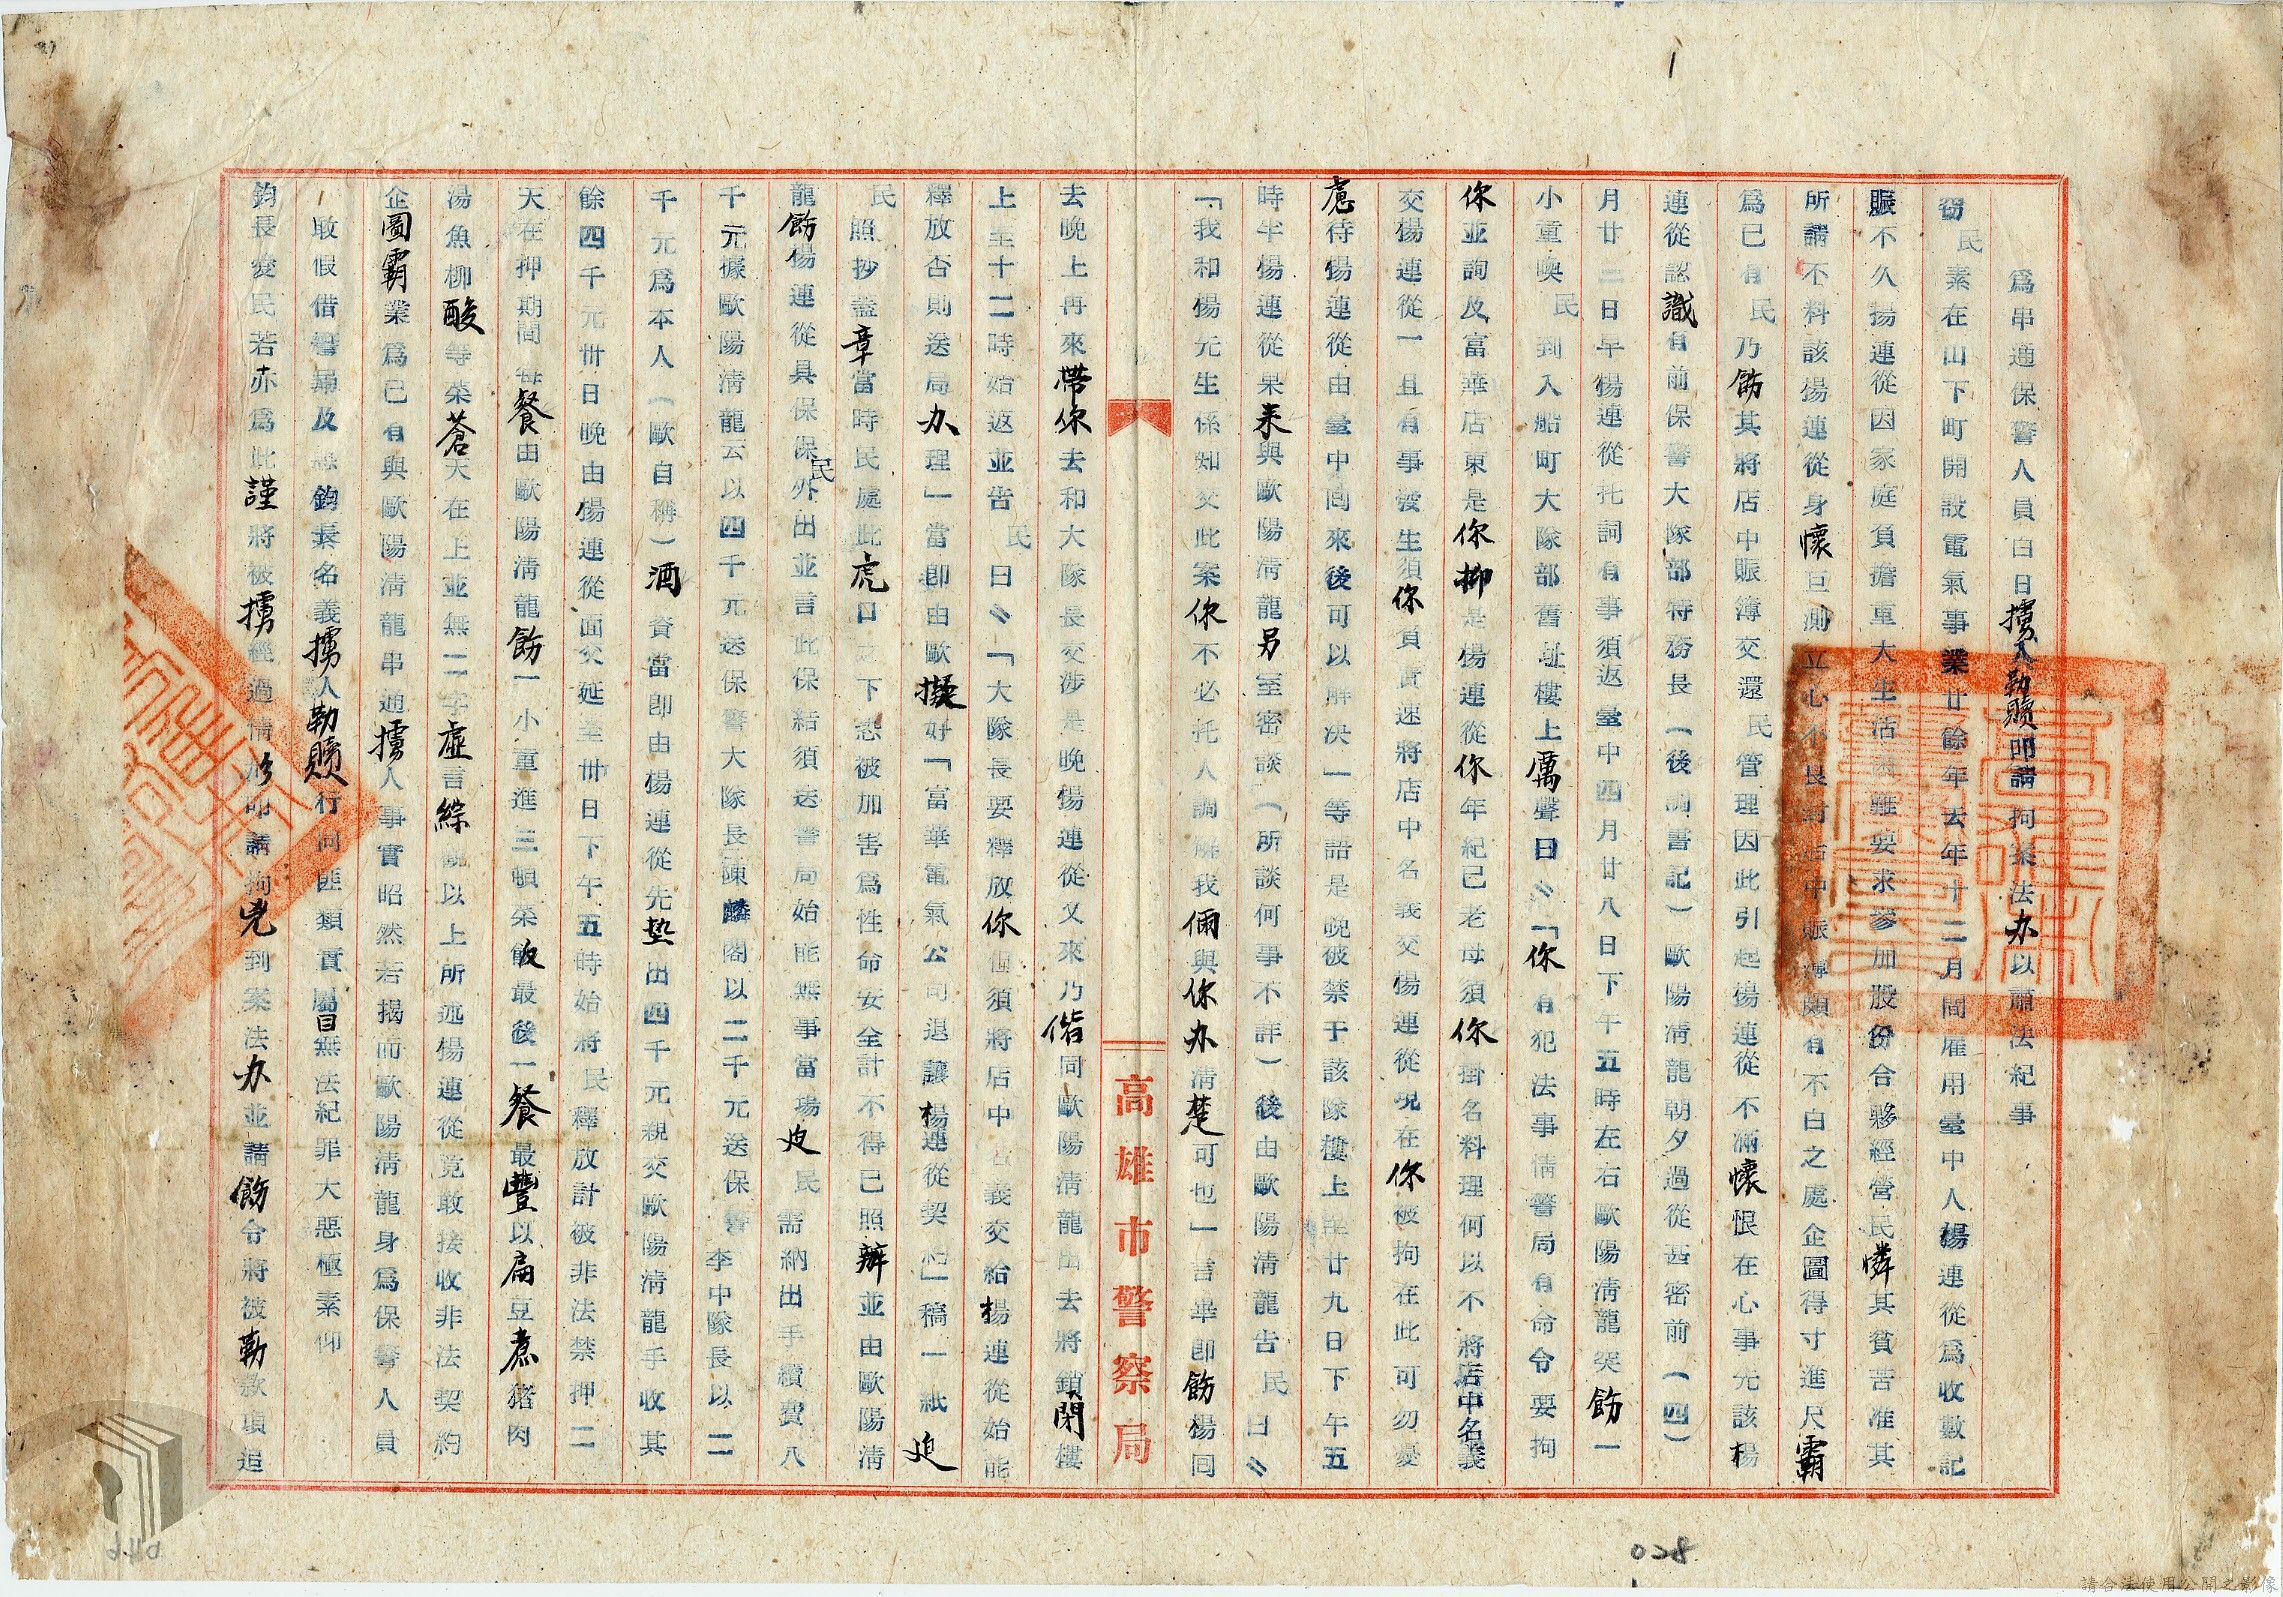 1
為串通保警人員白日擄人勒贖叩請拘案法办以肅法紀事
竊民素在山下町開設電氣事業廿餘年去年十二月間雇用臺中人楊連從為收數記
賬不久楊連從因家庭負擔重大生活困難要求參加股份合夥經營民憐其貧苦准其
所請不料該楊連從身懷叵測立心不良對店中賬簿頗有不白之處企圖得寸進尺霸
為己有民乃飭其將店中賬簿交還民管理因此引起楊連從不滿懷恨在心事先該楊
連從認識有前保警大隊部特務長(後調書記)歐陽清龍朝夕過從甚密前(四)
月廿二日午楊連從托詞有事須返臺中四月廿八日下午五時左右歐陽清龍突飭一
小童喚民到入船町大隊部舊址樓上厲聲曰〃「你有犯法事情警局有命令要拘
你並詢及富華店東是你抑是楊連從你年紀已老母須你掛名料理何以不將店中名義
交楊連從一旦有事發生須你負責速將店中名義交楊連從現在你被拘在此可勿憂
慮待楊連從由臺中回來後可以解決」等語是晚被禁于該隊樓上至廿九日下午五
時半楊連從果來與歐陽清龍另室密談(所談何事不詳)後由歐陽清龍告民曰〃
「我和楊先生係知交此案你不必托人調解我倆與你办清楚可也」言畢即飭楊回
高雄市警察局
去晚上再來帶你去和大隊長交涉是晚楊連從又來乃偕同歐陽清龍出去將鎖閉樓
上至十二時始返並告民曰〃「大隊長要釋放你但須將店中名義交給楊連從始能
釋放否則送局办理」當即由歐擬好「富華電氣公司退讓楊連從契約」稿一紙迫
民照抄蓋章當時民處此虎口之下恐被加害為性命安全計不得已照辦並由歐陽清
龍飭楊連從具保保民外出並言此保結須送警局始能無事當場迫民需納出手續費八
千元據歐陽清龍云以四千元送保警大隊長陳麟閣以二千元送保警李中隊長以二
千元為本人(歐自稱)酒資當即由楊連從先墊出四千元親交歐陽清龍手收其
餘四千元卅日晚由楊連從面交延至卅日下午五時始將民釋放計被非法禁押二
天在押期間每餐由歐陽清龍飭一小童進三頓菜飯最後一餐最豐以扁豆煮猪肉
湯魚柳酸等菜蒼天在上並無二字虛言綜觀以上所述楊連從竟敢接收非法契約
企圖霸業為己有與歐陽清龍串通擄人事實昭然若揭而歐陽清龍身為保警人員
敢假借警局及鈞長名義擄人勒贖行同匪類實屬目無法紀罪大惡極素仰
鈞長愛民若赤為此謹將被擄經過情形叩請拘兇到案法办並請飭令將被勒款項追
028
請合法使用公開之影像